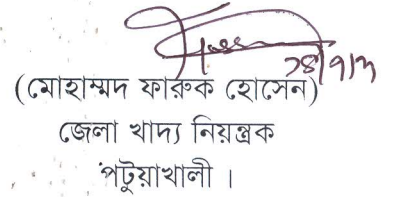 (মোহাম্মদ ফারুক হোসেন)
জেলা খাদ্য নিয়ন্ত্রক
পটুয়াখালী ।